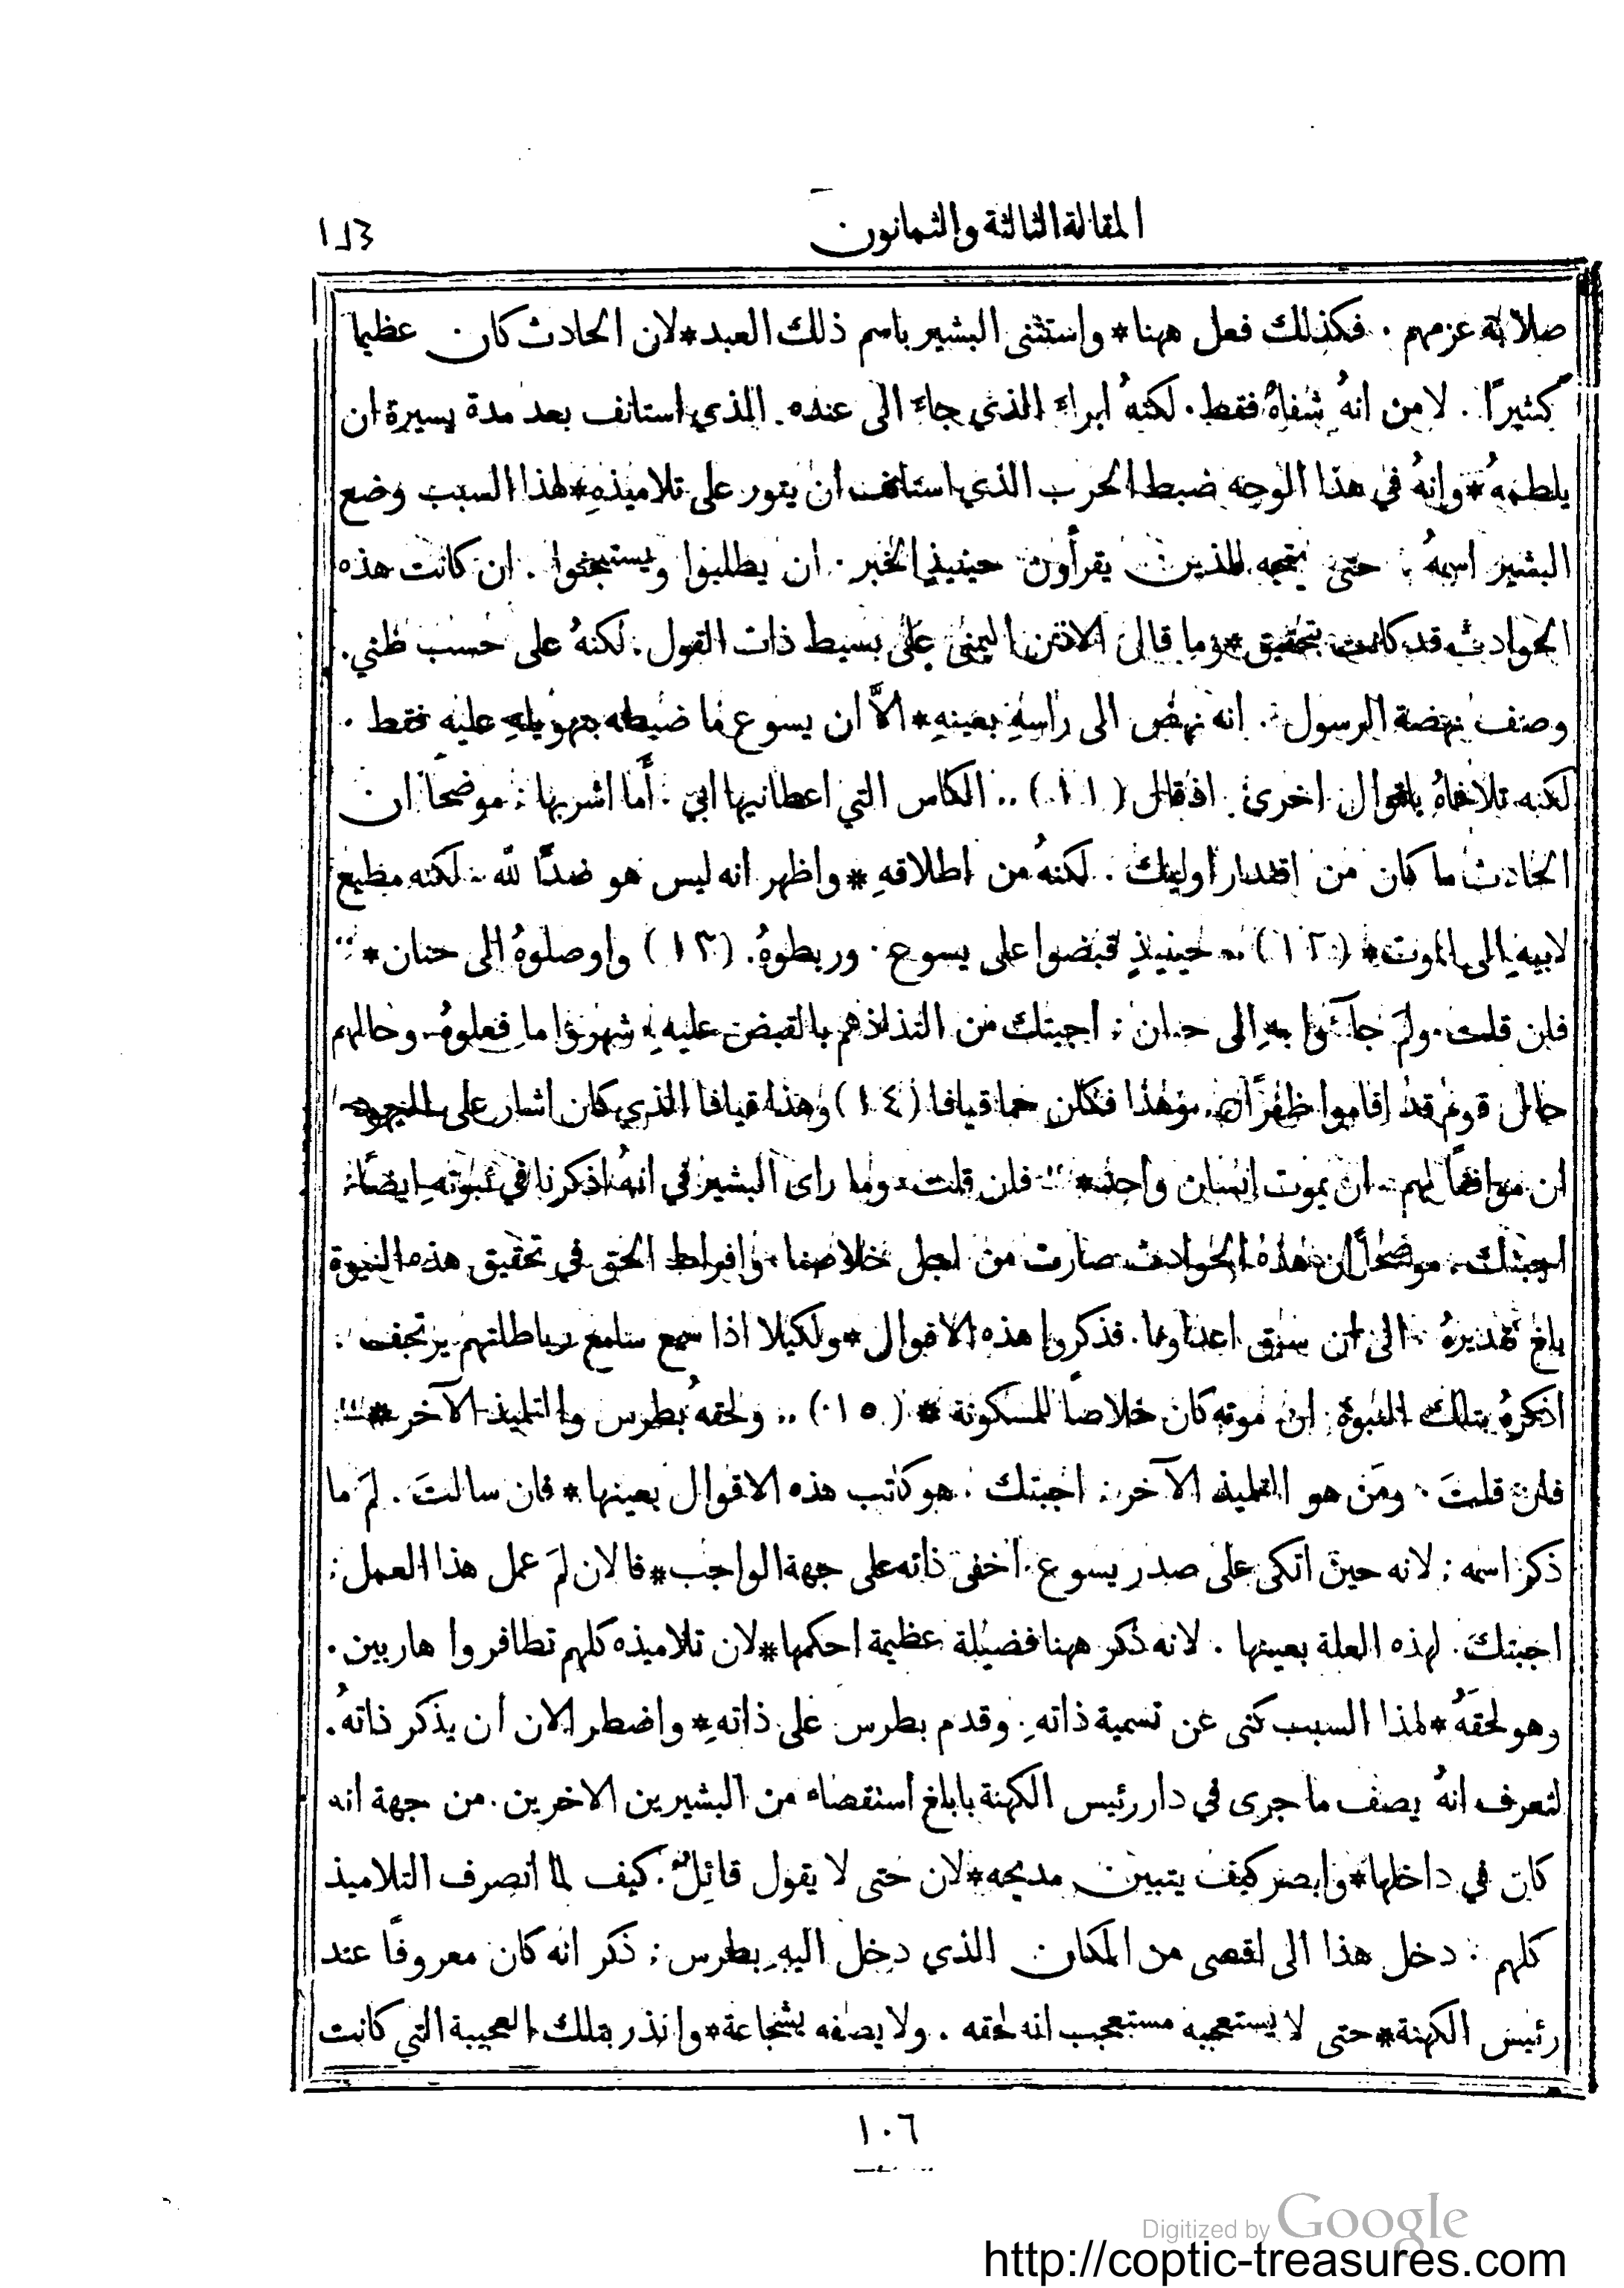 المقالة الثالثة والثمانون
صلابة عزمهم . فكذلك فعل ههنا * واستثنى البشير باسم ذلك العبد * لان الحادث كان عظيما
كثيرًا . لا من انهُ شفاهُ فقط . لكنهُ ابراء الذي جاء الى عنده . الذي استانف بعد مدة يسيرة ان
يلطمهُ * وانهُ في هذا الوجه ضبط الحرب الذي استانف ان يثور على تلاميذهِ * لهذا السبب وضع
البشير اسمهُ . حتى يتجه للذين يقرأون حينيذٍ الخبر . ان يطلبوا ويستبحثوا . ان كانت هذه
الحوادث قد كانت بتحقيق * وما قال الاذن اليمنى على بسيط ذات القول . لكنهُ على حسب ظني .
وصف نهضة الرسول . انه نهض الى راسهِ بعينهِ * الاَّ ان يسوع ما ضبطه بتهويلهِ عليه فقط .
لكنه تلافاهُ باقوال اخرى . اذ قال (١١) .. الكاس التي اعطانيها ابي . أَما اشربها : موضحاً ان
الحادث ما كان من اقتدار اوليك . لكنهُ من اطلاقهِ * واظهر انه ليس هو ضدًّا لله . لكنه مطيع
لابيهِ الى الموت * (١٢) .. حينيذٍ قبضوا على يسوع . وربطوهُ . (١٣) واوصلوهُ الى حنان * ..
فان قلت . ولمَ جآءوا بهِ الى حنان : اجبتك من التذاذهم بالقبض عليهِ . شهروا ما فعلوهُ . وحالهم
حال قوم قد اقاموا ظفرًا . وهذا فكان حما قيافا (١٤) وهذا قيافا الذي كان اشار على اليهود
ان موافقاً لهم . ان يموت انسان واحد * .. فان قلت . وما راى البشير في انهُ اذكرنا في نبوته ايضًا :
اجبتك . موضحاً ان هذهُ الحوادث صارت من اجل خلاصنا . وافراط الحق في تحقيق هذه النبوة
بلغ تقديرهُ . الى ان سبق اعداوها . فذكروا هذه الاقوال * ولكيلا اذا سمع سامع رباطاتهم يرتجف .
اذكرهُ بتلك النبوة . ان موته كان خلاصاً للمسكونة * (١٥) .. ولحقهُ بطرس والتلميذ الآخر * ..
فان قلتَ . ومَن هو التلميذ الآخر : اجبتك . هو كاتب هذه الاقوال بعينها * فان سالتَ . لمَ ما
ذكر اسمه : لانه حين اتكى على صدر يسوع . اخفى ذاته على جهة الواجب * فالان لمَ عمل هذا العمل :
اجبتك . لهذه العلة بعينها . لانه ذكر ههنا فضيلة عظيمة احكمها * لان تلاميذه كلهم تطافروا هاربين .
وهو لحقهُ * لهذا السبب كنى عن تسمية ذاتهِ . وقدم بطرس على ذاتهِ * واضطر الان ان يذكر ذاتهُ .
لتعرف انهُ يصف ما جرى في دار رئيس الكهنة باباغ استقصاء من البشيرين الاخرين . من جهة انه
كان في داخلها * وابصر كيف يتبين مديحه * لان حتى لا يقول قائلٌ . كيف لما انصرف التلاميذ
كلهم . دخل هذا الى اقصى من المكان الذي دخل اليهِ بطرس : ذكر انه كان معروفاً عند
رئيس الكهنة * حتى لا يستعجبه مستعجب انه لحقه . ولا يصفه بشجاعة * وانذر بتلك العجيبة التي كانت
١٠٦
Digitized by Google
http://coptic-treasures.com